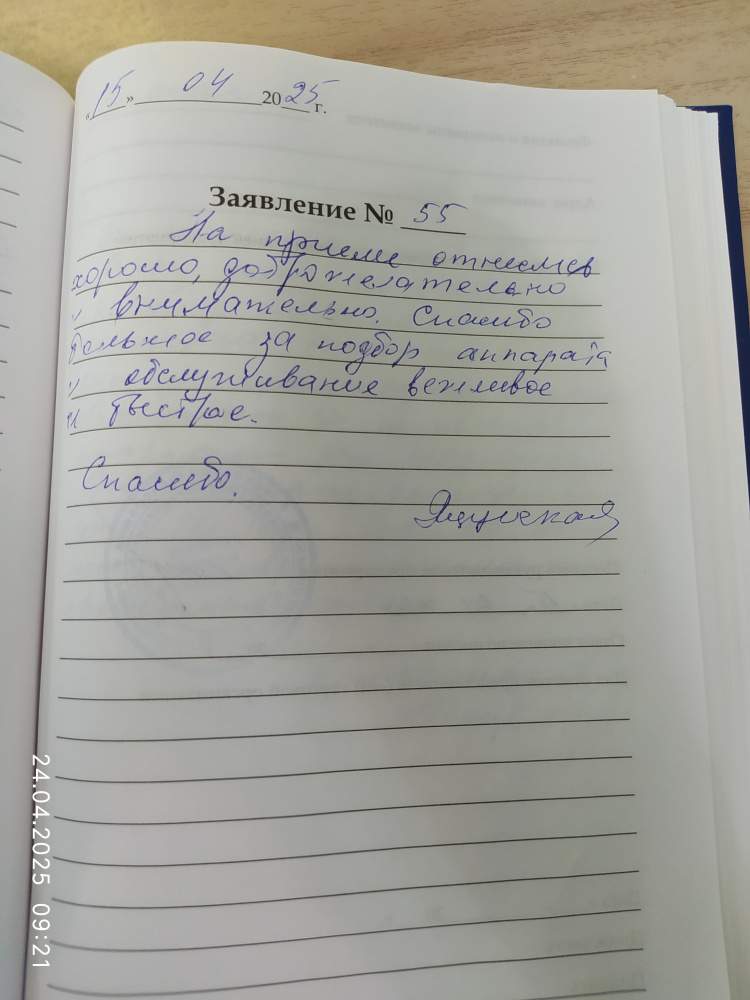 «15» 04 2025 г.
Заявление № 55
На приеме отнеслись
хорошо, доброжелательно
и внимательно. Спасибо
большое за подбор аппарата
и обслуживание вежливое
и быстрое.
Спасибо.
24.04.2025 09:21